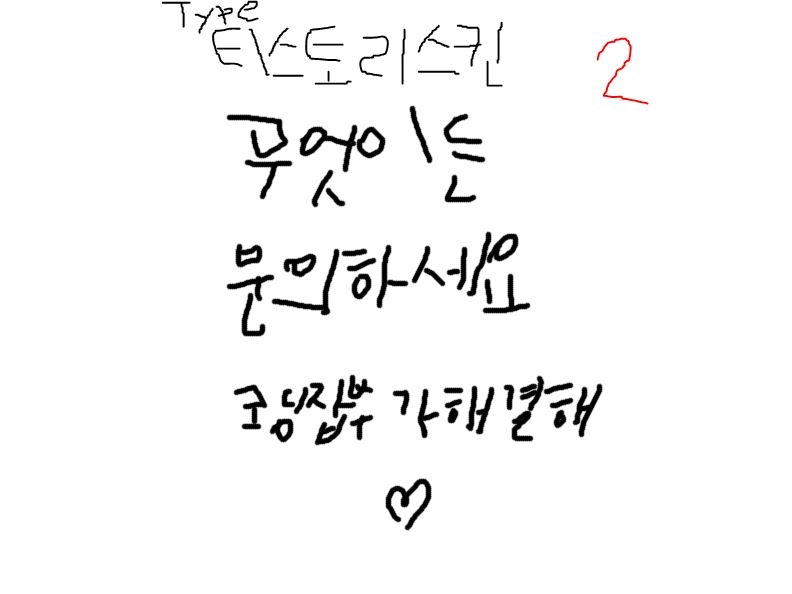 Type
티스토리스킨
2
무엇이든
문의하세요
코딩잡부가해결해
♡